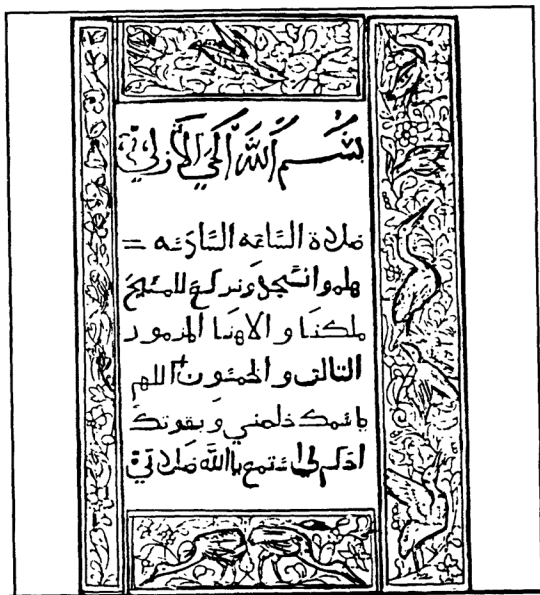 بسم الله الحي الازلي
صلاة الساعه السادسه =
هلموا نسجد ونركع للمسيح
ملكنا والاهنا المزمور
التالت والخمسون + اللهم
باسمك خلصني وبقوتك
احكم لي استمع يا الله صلاتي